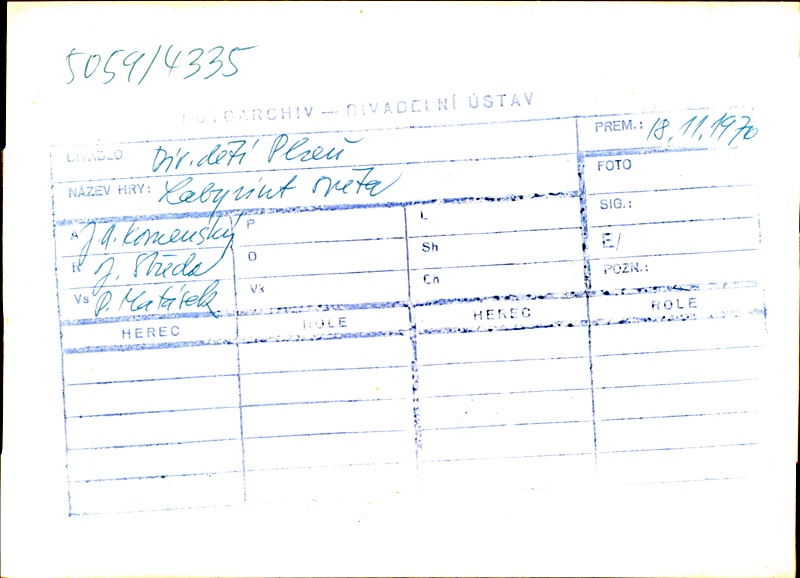 5059/4335
FOTOARCHIV — DIVADELNÍ ÚSTAV
DIVADLO Div. dětí Plzeň
PREM.: 18.11.1970
NÁZEV HRY: Labyrint světa
FOTO
SIG.:
A J. A. Komenský P L
E/
R J. Středa O Sh
POZN.:
Vs P. Matásek Vk Ch
HEREC ROLE HEREC ROLE